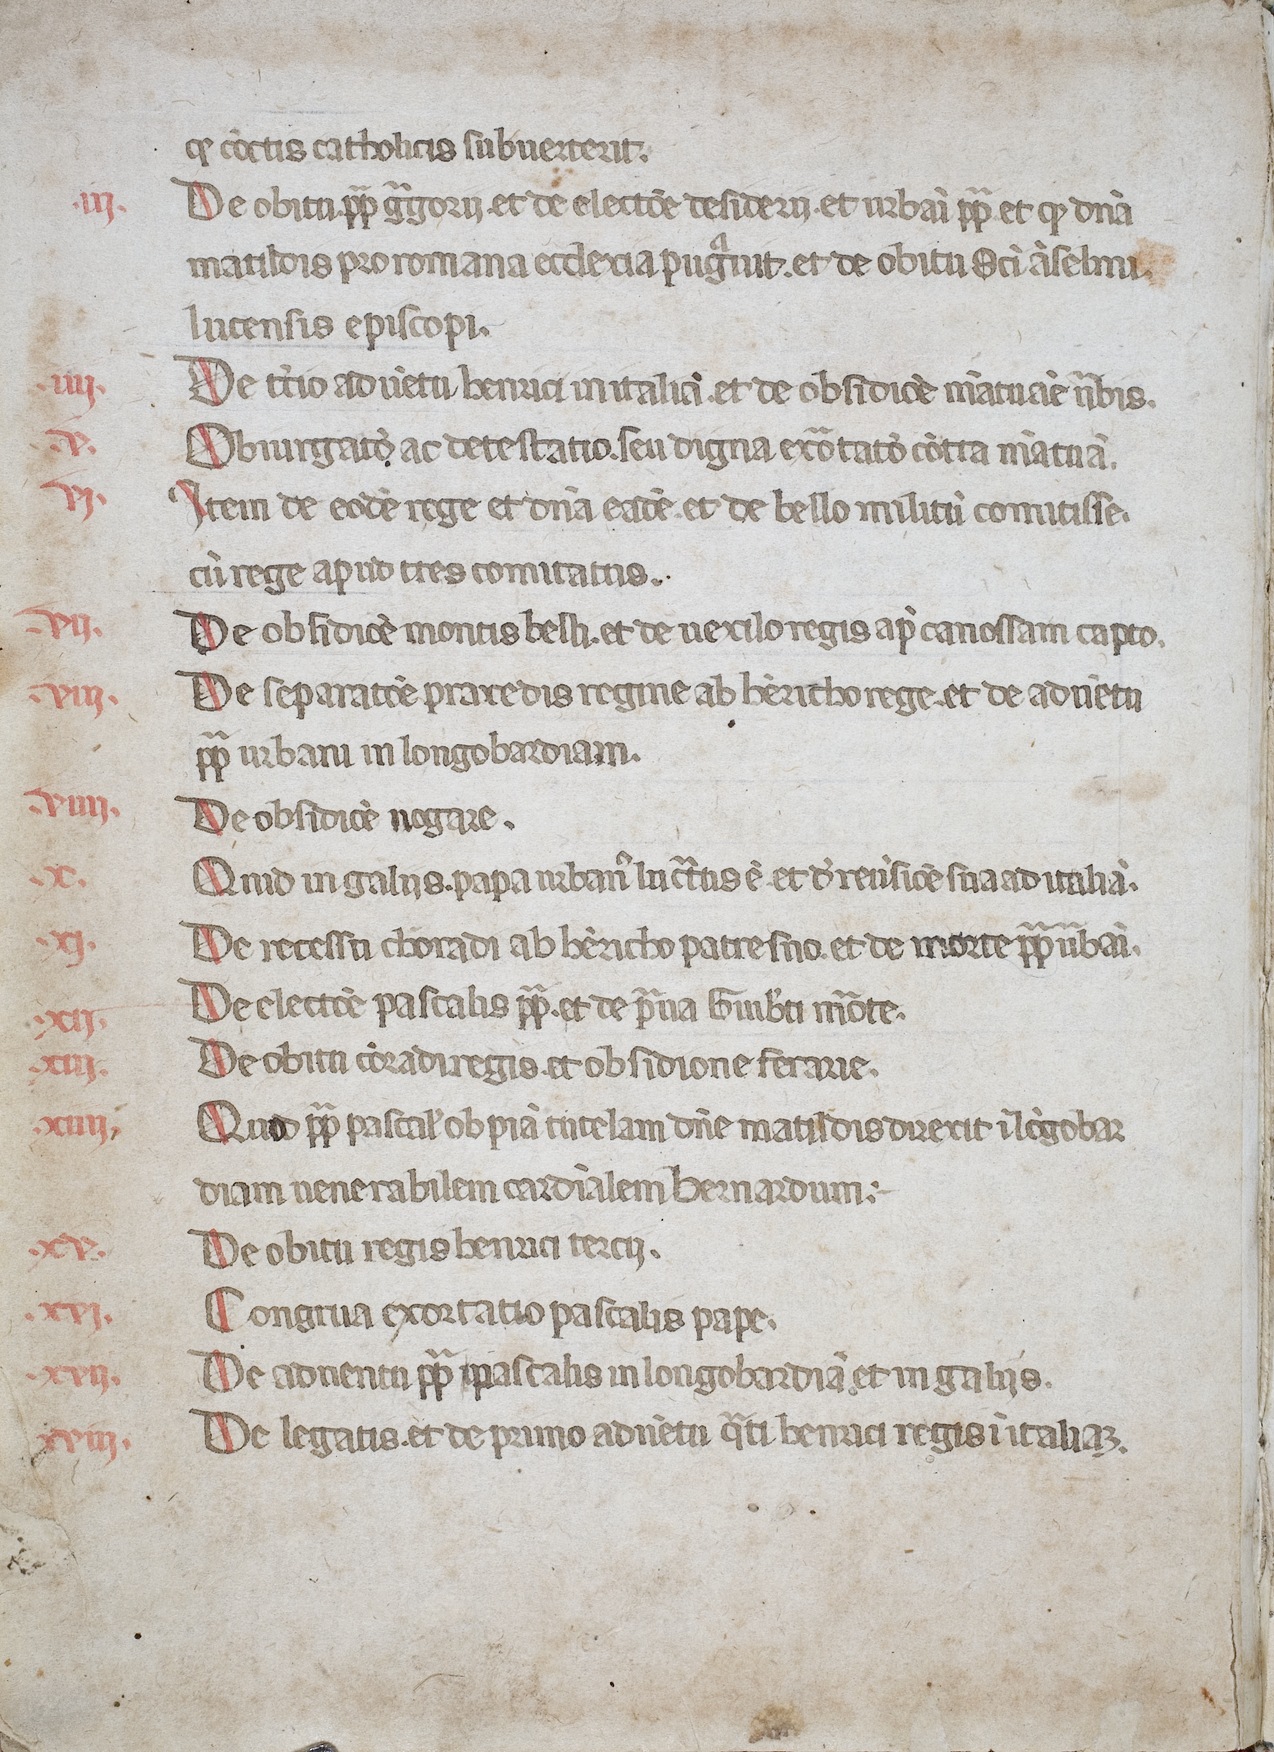 qꝛ cōctis catholicis subuerterit.
.iij. De obitu pp̄ gͣgorij. et de electōe desiderij. et urbāi pp̄. et qꝛ dn̄a
matildis pro romana ecclexia pugͣuit. et de obitu Sci āselmi.
lucensis episcopi.
.iiij. De t̄cio aduētu henrici in italiā. et de obsidiōe mātuāe ūbis.
.v. Obiurgatō ac detestatio. seu digna exōrtatō cōtra mātuā.
.vi. Item de eodē rege et dn̄a eadē. et de bello militū comitisse.
cū rege apud tres comitatus.
.vij. De obsidiōe montis belli. et de uexilo regis ap̄ canossam capto.
.viij. De separatōe praxedis regine ab hēricho rege. et de aduētu
pp̄ urbani in longobardiam.
.viiij. De obsidiōe nogare.
.x. Quid in galijs. papa urbanꝰ luct̄tus ē. et d' reūsiōe sua ad italiā.
.xj. De recessu choradi ab hēricho patre suo. et de morte pp̄ ūbāi.
.xij. De electōe pascalis pp̄. et de pͣua Guib'ti mōrte.
.xiij. De obitu cōradi regis. et obsidione ferarie.
.xiiij. Quod pp̄ pascal' ob piā tutelam dn̄e matildis direxit ī lōgobar
diam uenerabilem cardīalem bernardum:-
.xv. De obitu regis henrici tercij.
.xvi. Congrua exortatio pascalis pape.
.xvij. De aduentu pp̄ pascalis in longobardiā. et in galijs.
xviij. De legatis. et de primo aduētu qͣti henrici regis ī italiaꝫ.